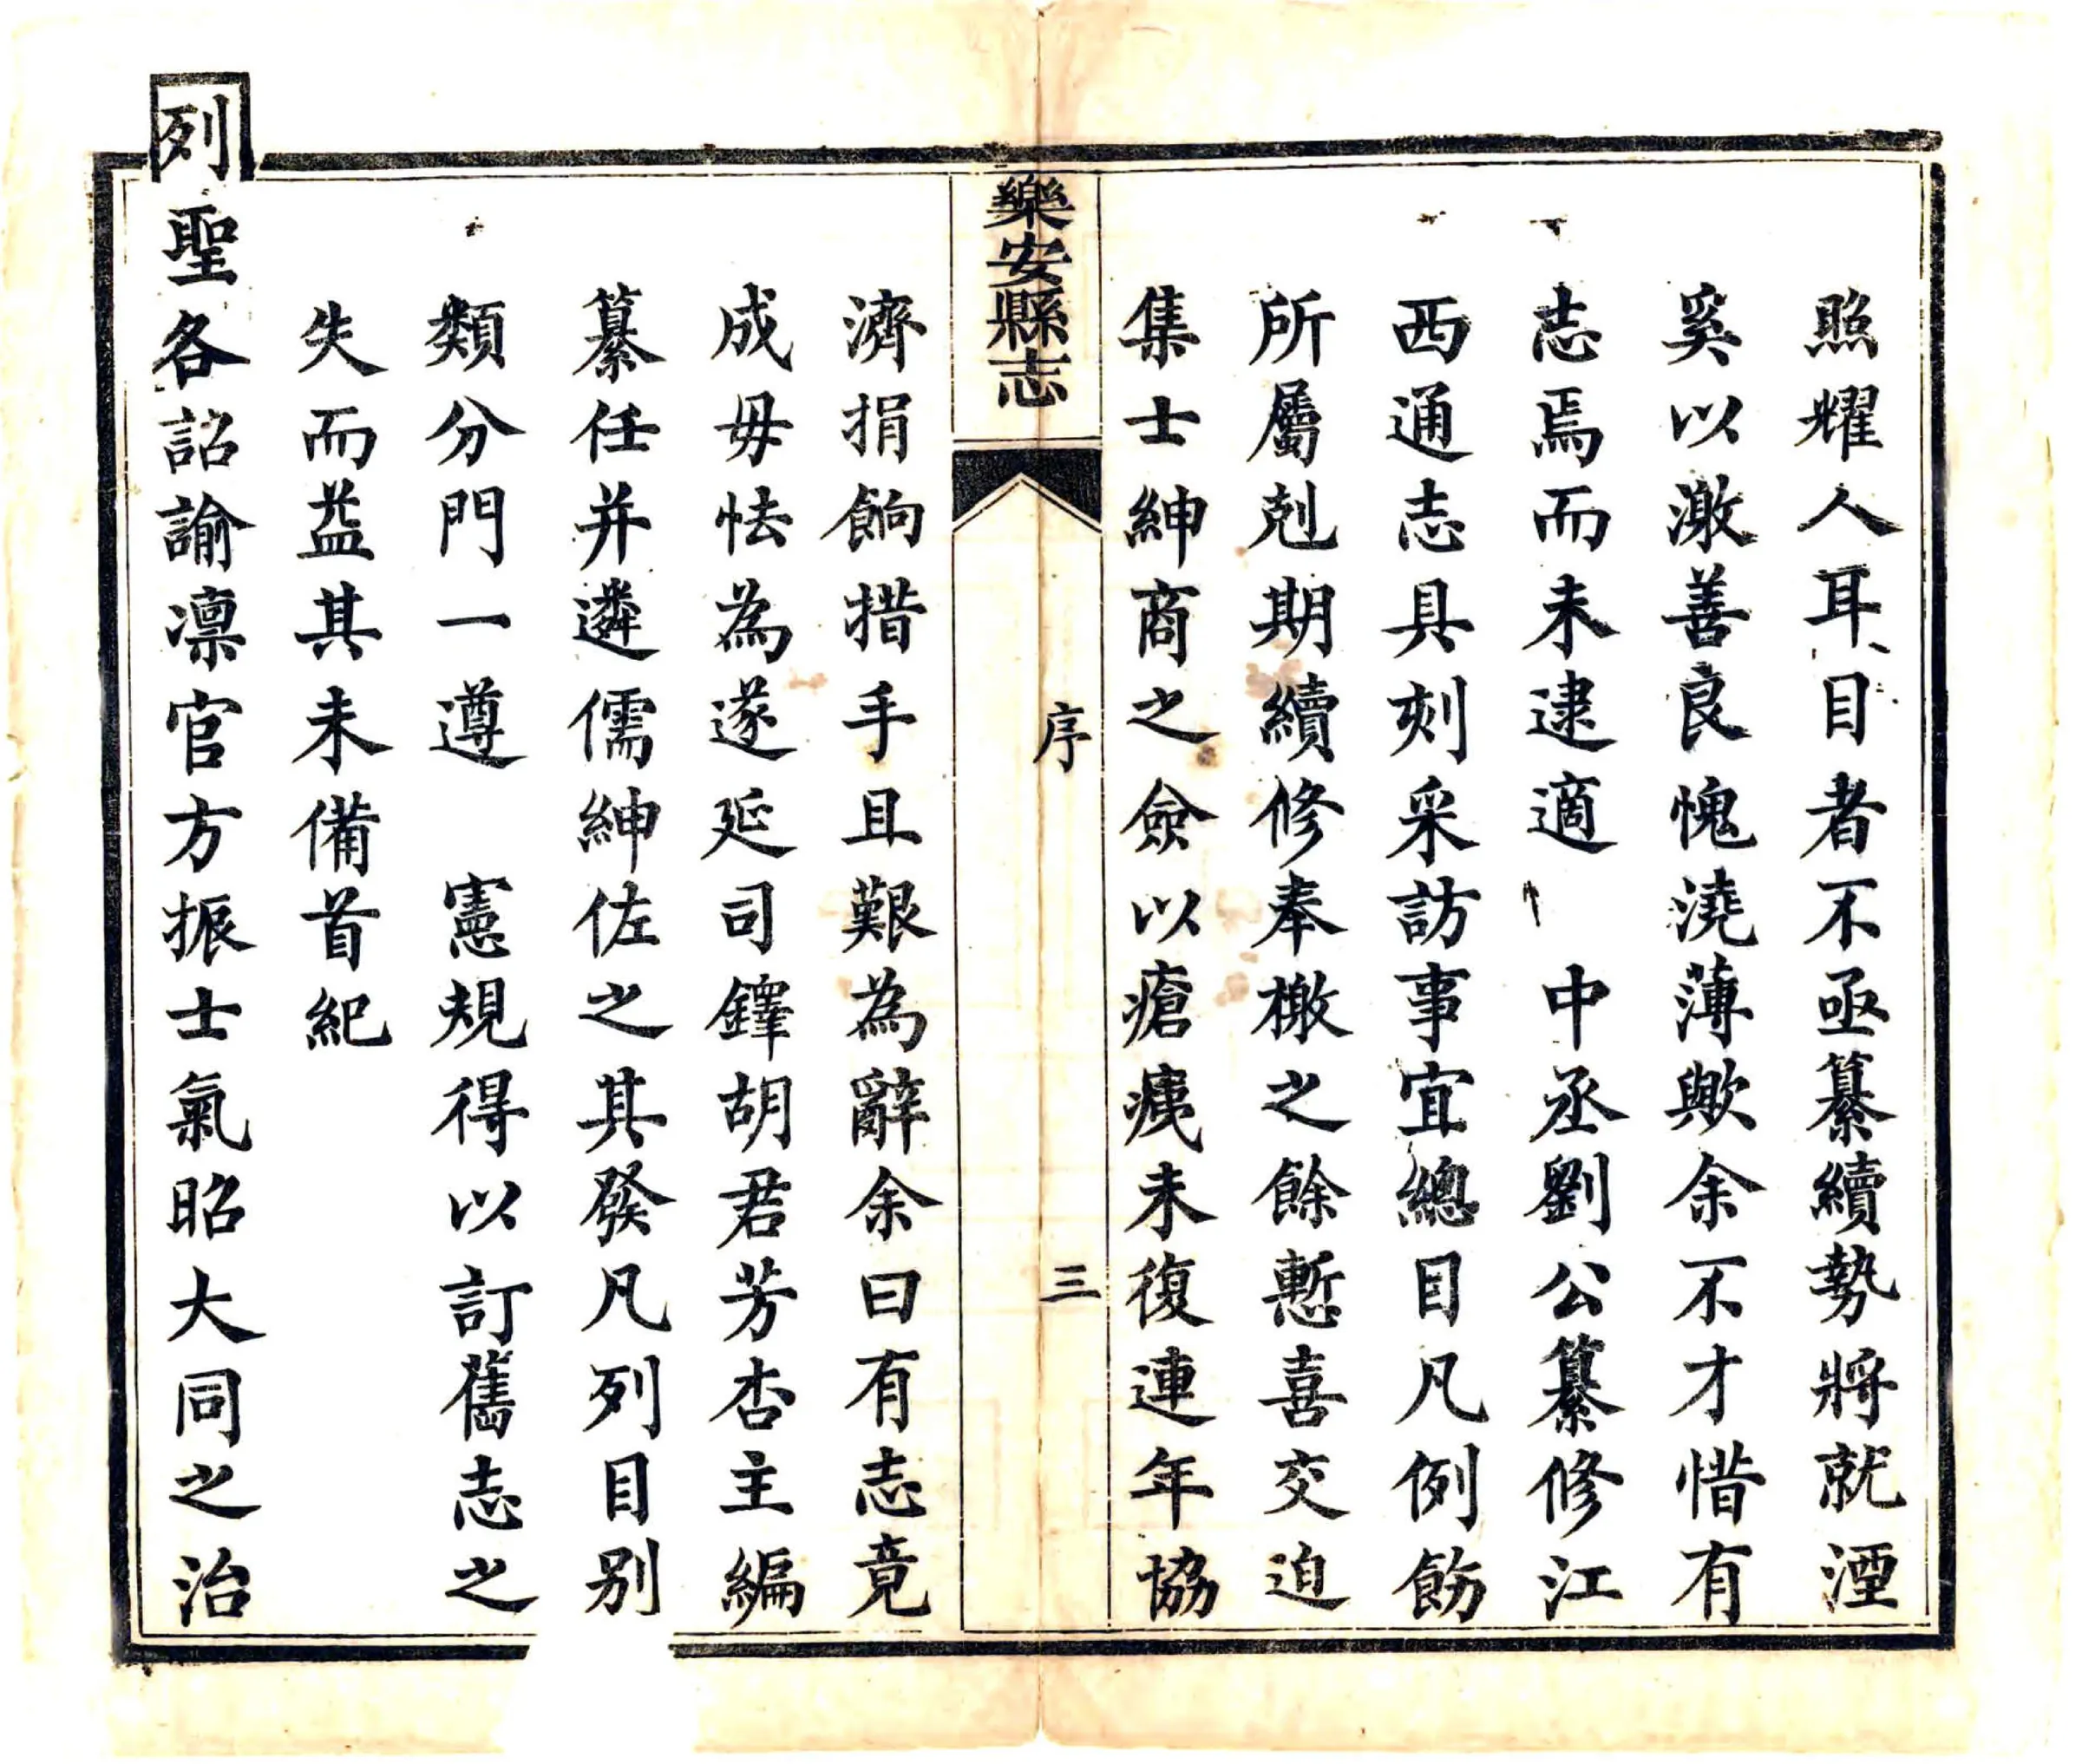 照耀人耳目者不亟纂續勢將就湮
奚以激善良愧澆薄歟余不才惜有
志焉而未逮適　中丞劉公纂修江
西通志具刻采訪事宜總目凡例飭
所屬剋期續修奉檄之餘慙喜交迫
集士紳商之僉以瘡痍未復連年協
樂安縣志
序
三
濟捐餉措手且艱為辭余曰有志竟
成毋怯為遂延司鐸胡君芳杏主編
纂任并遴儒紳佐之其發凡列目別
類分門一遵　憲規得以訂舊志之
失而益其未備首紀
列聖各詔諭凛官方振士氣昭大同之治